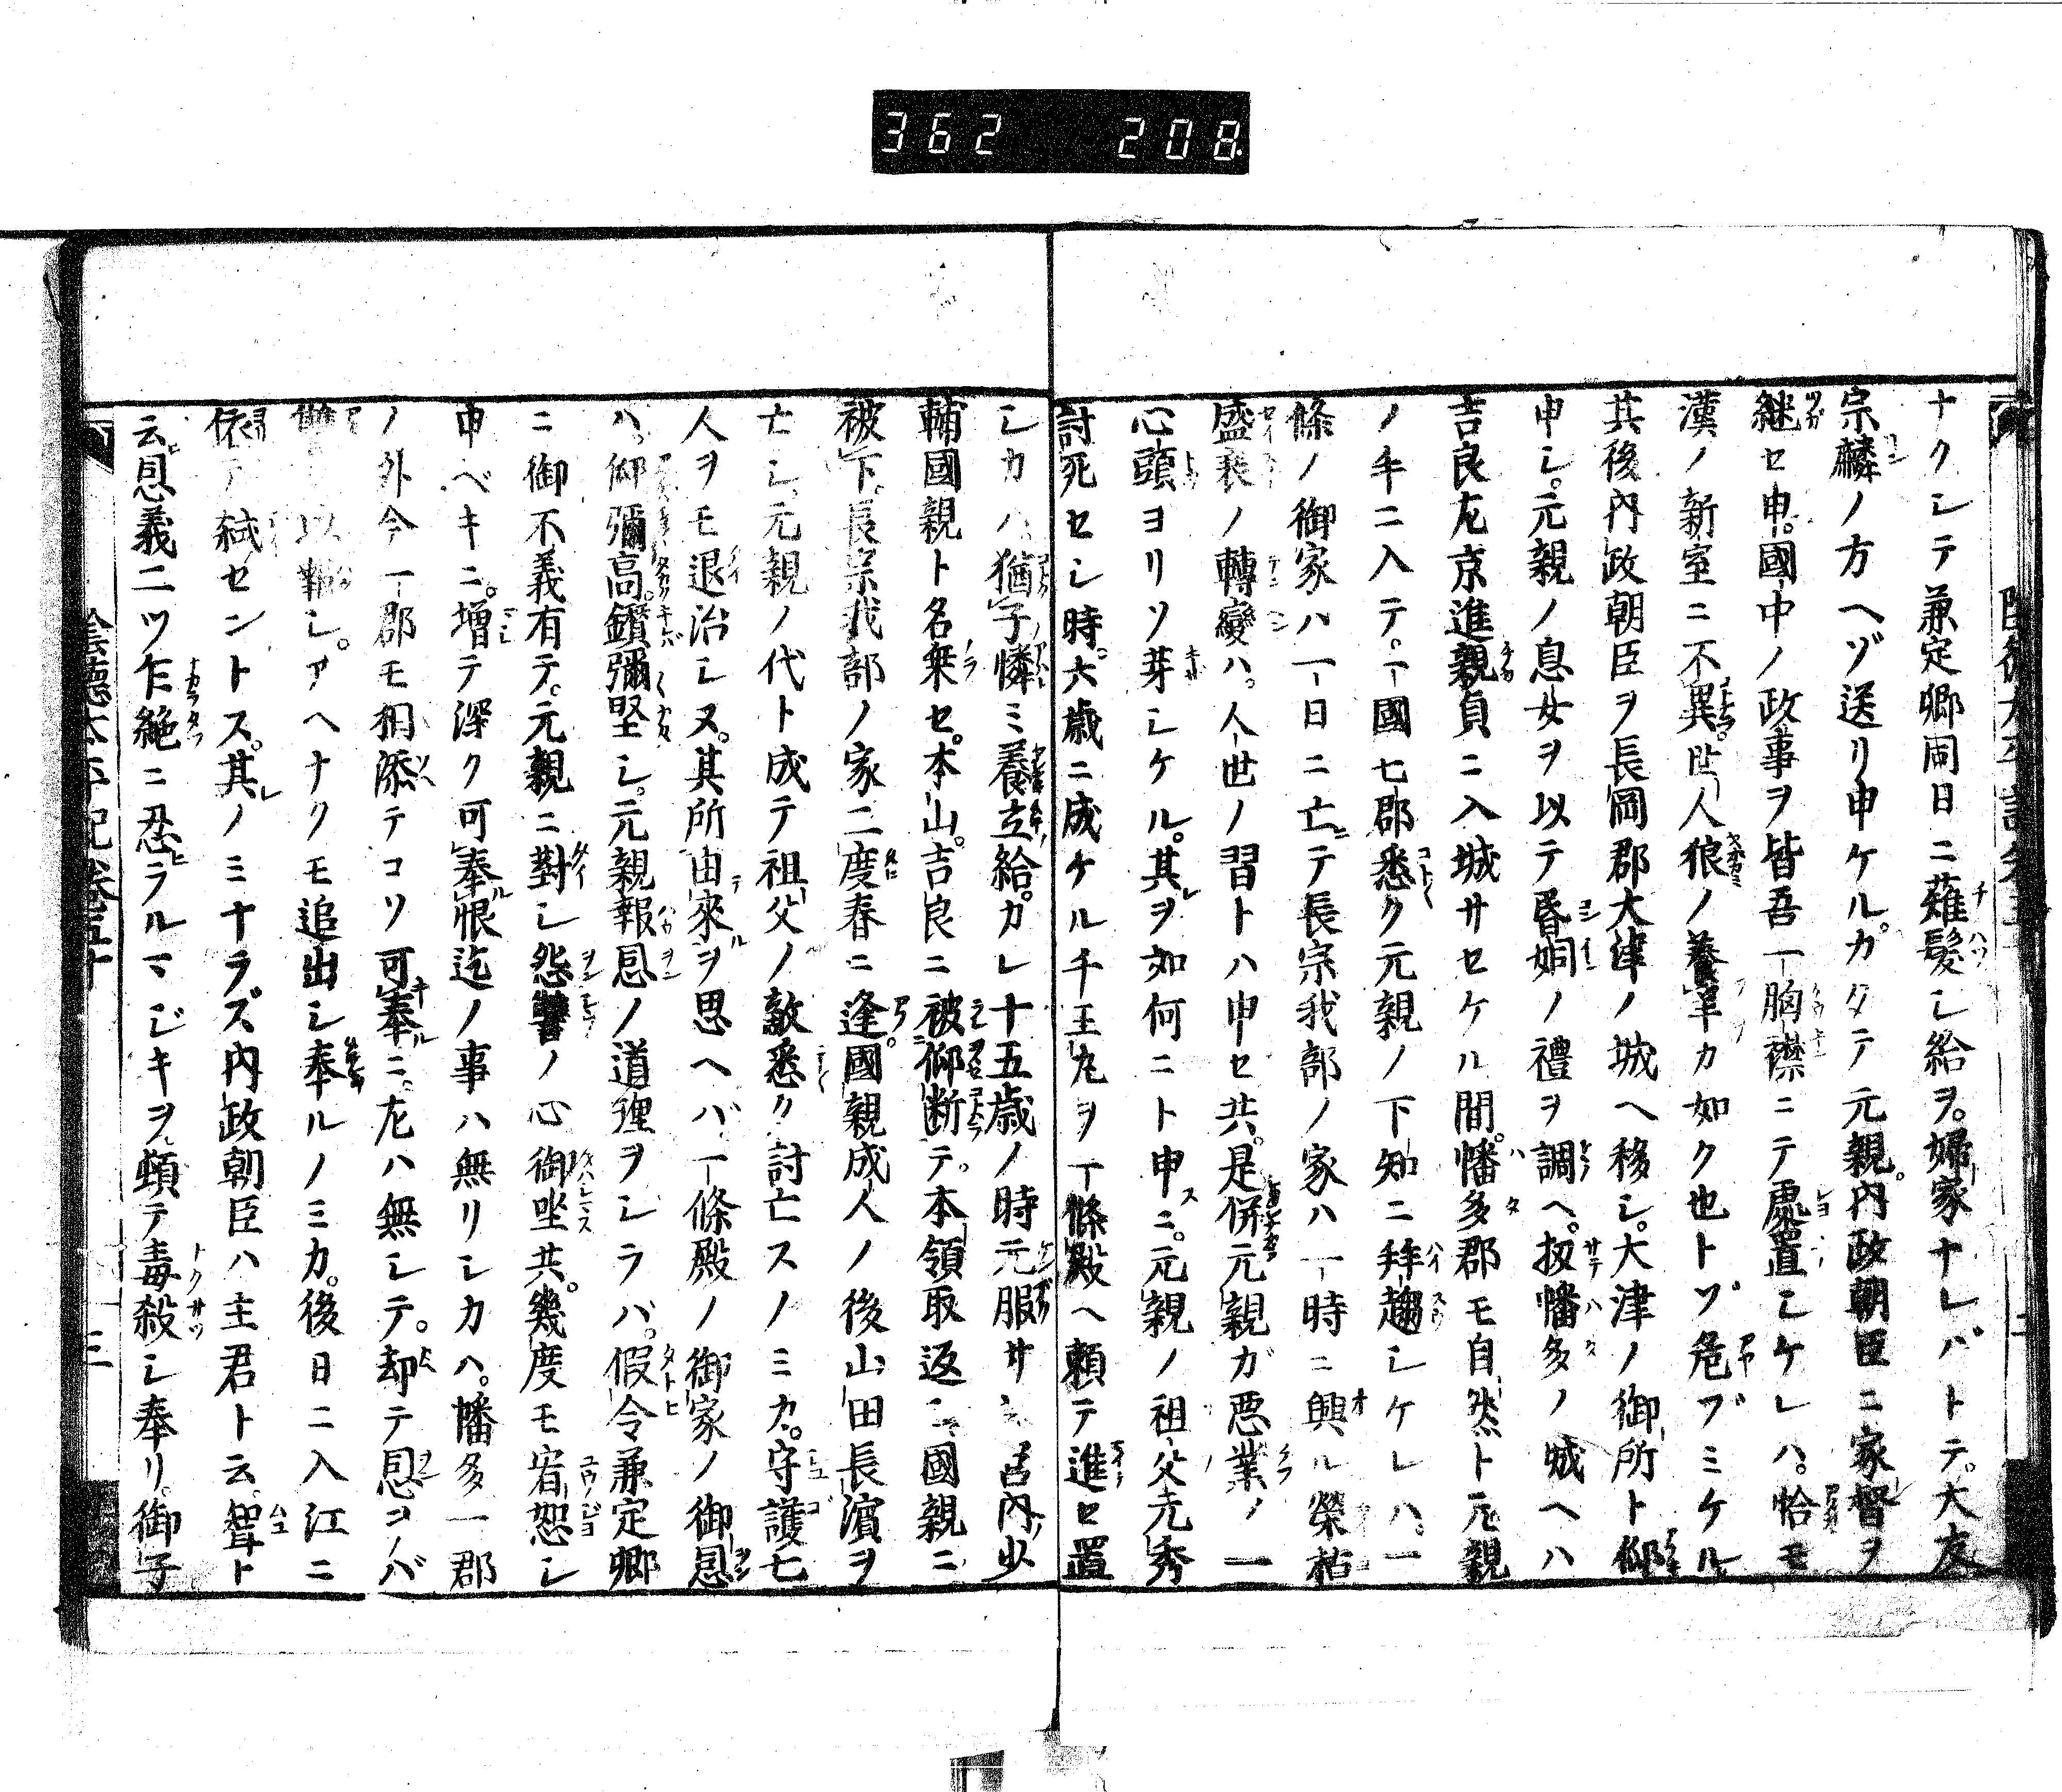 362 208
ナクシテ兼定卿同日ニ薙髪シ給ヲ。婦家ナレバトテ。大友
宗麟ノ方ヘゾ送リ申ケル。カクテ元親。内政朝臣ニ家督ヲ
継セ申。國中ノ政事ヲ皆吾一胸襟ニテ處置シケレハ。恰モ
漢ノ新室ニ不異。世人狼ノ養羊カ如ク也トゾ危ブミケル
其後内政朝臣ヲ長岡郡大津ノ城ヘ移シ。大津ノ御所ト仰
申シ。元親ノ息女ヲ以テ昏姻ノ禮ヲ調ヘ。扨幡多ノ城ヘハ
吉良左京進親貞ニ入城サセケル間。幡多郡モ自然ト元親
ノ手ニ入テ。一國七郡悉ク元親ノ下知ニ拜趨シケレハ。一
條ノ御家ハ一日ニ亡テ長宗我部ノ家ハ一時ニ興ル榮枯
盛衰ノ轉變ハ。人世ノ習トハ申セ共。是併元親ガ悪業ノ一
心頭ヨリソ芽シケル。其ヲ如何ニト申ニ。元親ノ祖父元秀
討死セシ時。六歳ニ成ケル千王丸ヲ一條殿ヘ頼テ進セ置
シカハ。猶子憐ミ養立給。カレ十五歳ノ時元服サシ宮内少
輔國親ト名乗セ。本山。吉良ニ被仰断テ。本領取返シ國親ニ
被下。長宗我部ノ家二度春ニ逢。國親成人ノ後山田長濱ヲ
亡シ。元親ノ代ト成テ祖父ノ敵悉ク討亡スノミカ。守護七
人ヲモ退治シヌ。其所由來ヲ思ヘバ一條殿ノ御家ノ御恩
ハ。仰彌高。鑽彌堅シ。元親報恩ノ道理ヲシラバ。假令兼定卿
ニ御不義有テ。元親ニ對シ怨讐ノ心御坐共。幾度モ宥恕シ
申ベキニ。増テ深ク可奉恨迄ノ事ハ無リシカハ。幡多一郡
ノ外今一郡モ相添テコソ可奉ニ。左ハ無シテ。却テ恩ヲバ
讎以報シ。アヘナクモ追出シ奉ルノミカ。後日ニ入江ニ
依テ弑セントス。其ノミナラズ内政朝臣ハ主君ト云。聟ト
云恩義二ツ乍絶ニ忍ラルマジキヲ頓テ毒殺シ奉リ。御子
陰德太平記卷五十 三